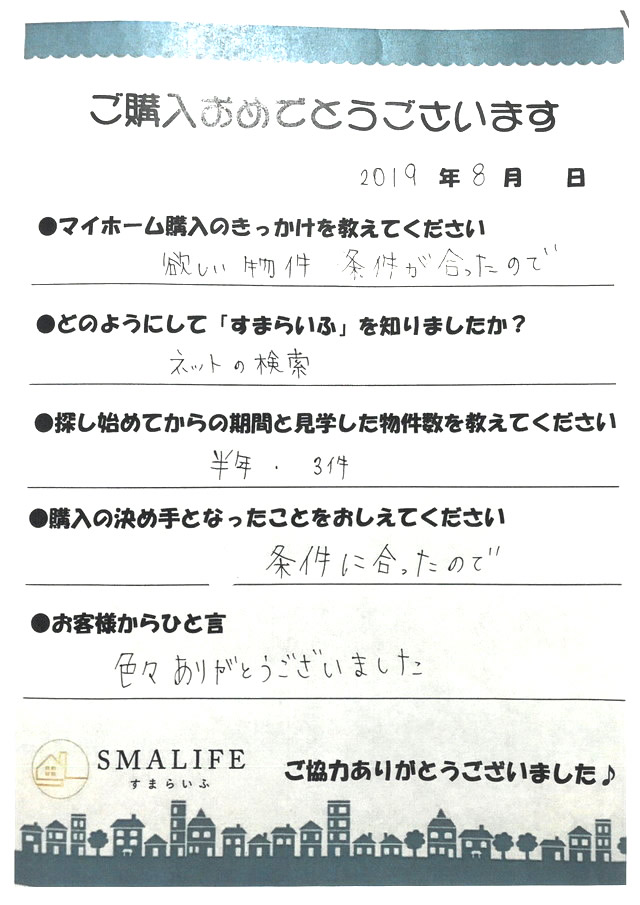 ご購入おめでとうございます
2019 年 8 月 日
●マイホーム購入のきっかけを教えてください
欲しい物件 条件が合ったので
●どのようにして「すまらいふ」を知りましたか？
ネットの検索
●探し始めてからの期間と見学した物件数を教えてください
半年 ・ 3件
●購入の決め手となったことをおしえてください
条件に合ったので
●お客様からひと言
色々ありがとうございました
SMALIFE
すまらいふ
ご協力ありがとうございました♪